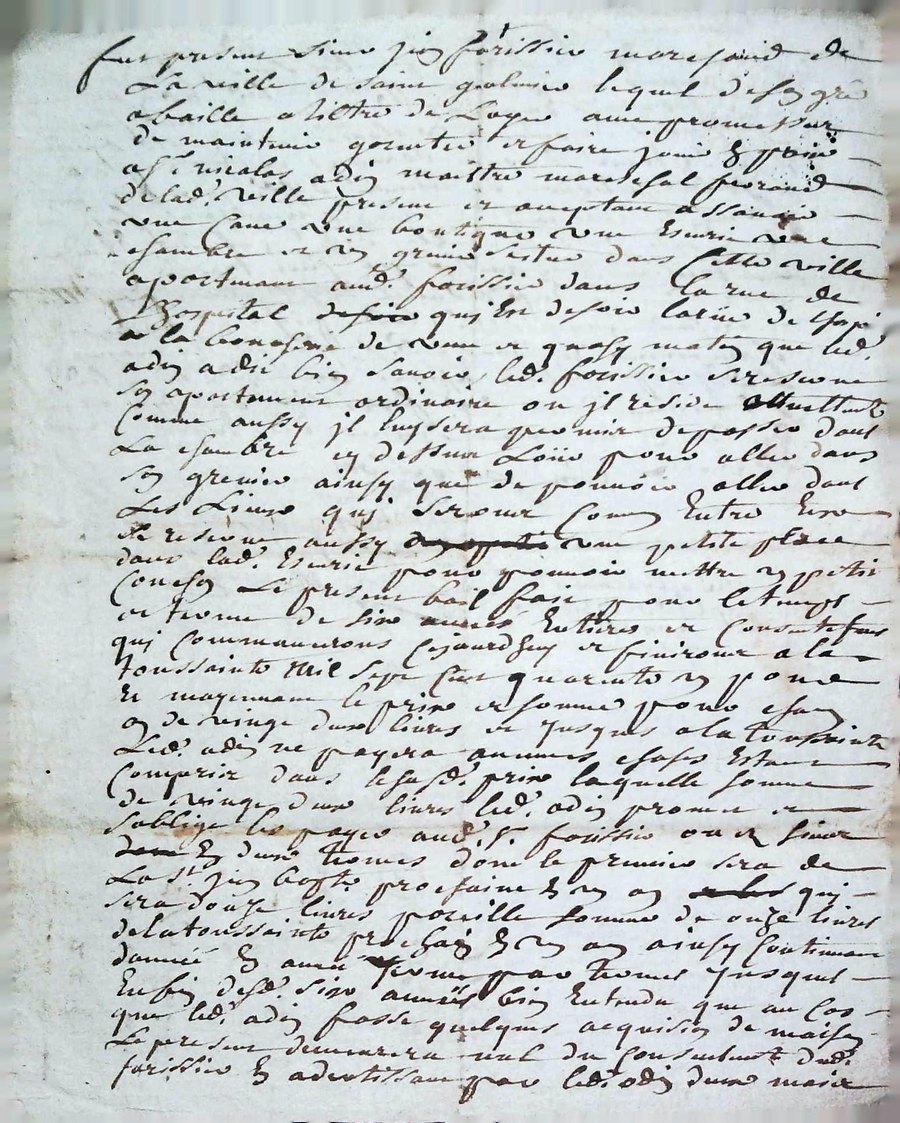 fut present sieur jean forissier marchand de
la ville de saint galmier lequel de son gré
a baillé a tiltre de loyer avec promesse
de maintenir garentir et faire jouir en paix
a sr nicolas adin maittre marechal ferrand
de lad. ville present et aceptant assavoir
une cave une boutique une Ecurie une
chambre et un grenier situé dans cette ville
apartenant aud. forissier dans la rue de
lhospital qui Est de soir la rue de
a la de vent et quasy matin que led.
adin a dit bien savoir, led. forissier se reserve
son apartement ordinaire ou jl reside
comme aussy jl luy sera permis de passer dans
la chambre cy dessus Loüé pour aller dans
son grenier ainsy que de pouvoir aller dans
les Lieux qui seront Comun Entre Eux
se reserve aussy une petite place
dans lad. Ecurie pour pouvoir mettre un petit
cochon Le present bail fait pour le temps
et terme de six années Entiere et Consecutives
qui Commanceront cejourdhuy et finiront a la
toussainte mil sept Cent quarente un pour
Et moyennant le prix et somme pour chacun
an de vingt deux livres et jusques a la toussainte
Led. adin ne payera aucunes choses Estant
Comprir dans le susd. prix laquelle somme
de vingt deux livres led. adin promet et
soblige les payer aud. sr. forissier ou et sieurs
En deux termes dont le premier sera de
La st jean bapte prochaine En un an qui
sera douze livres pareille somme de onze livres
de la toussainte prochain En un an ainsy Continuer
dannée En année terme par termes jusques
Enfin desd. six années bien Entendu que au Cas
que led. adin fasse quelques acquision de maison
Le present demeurera nul du Consentemt dud.
forissier En advertissant par led. adin deux mois